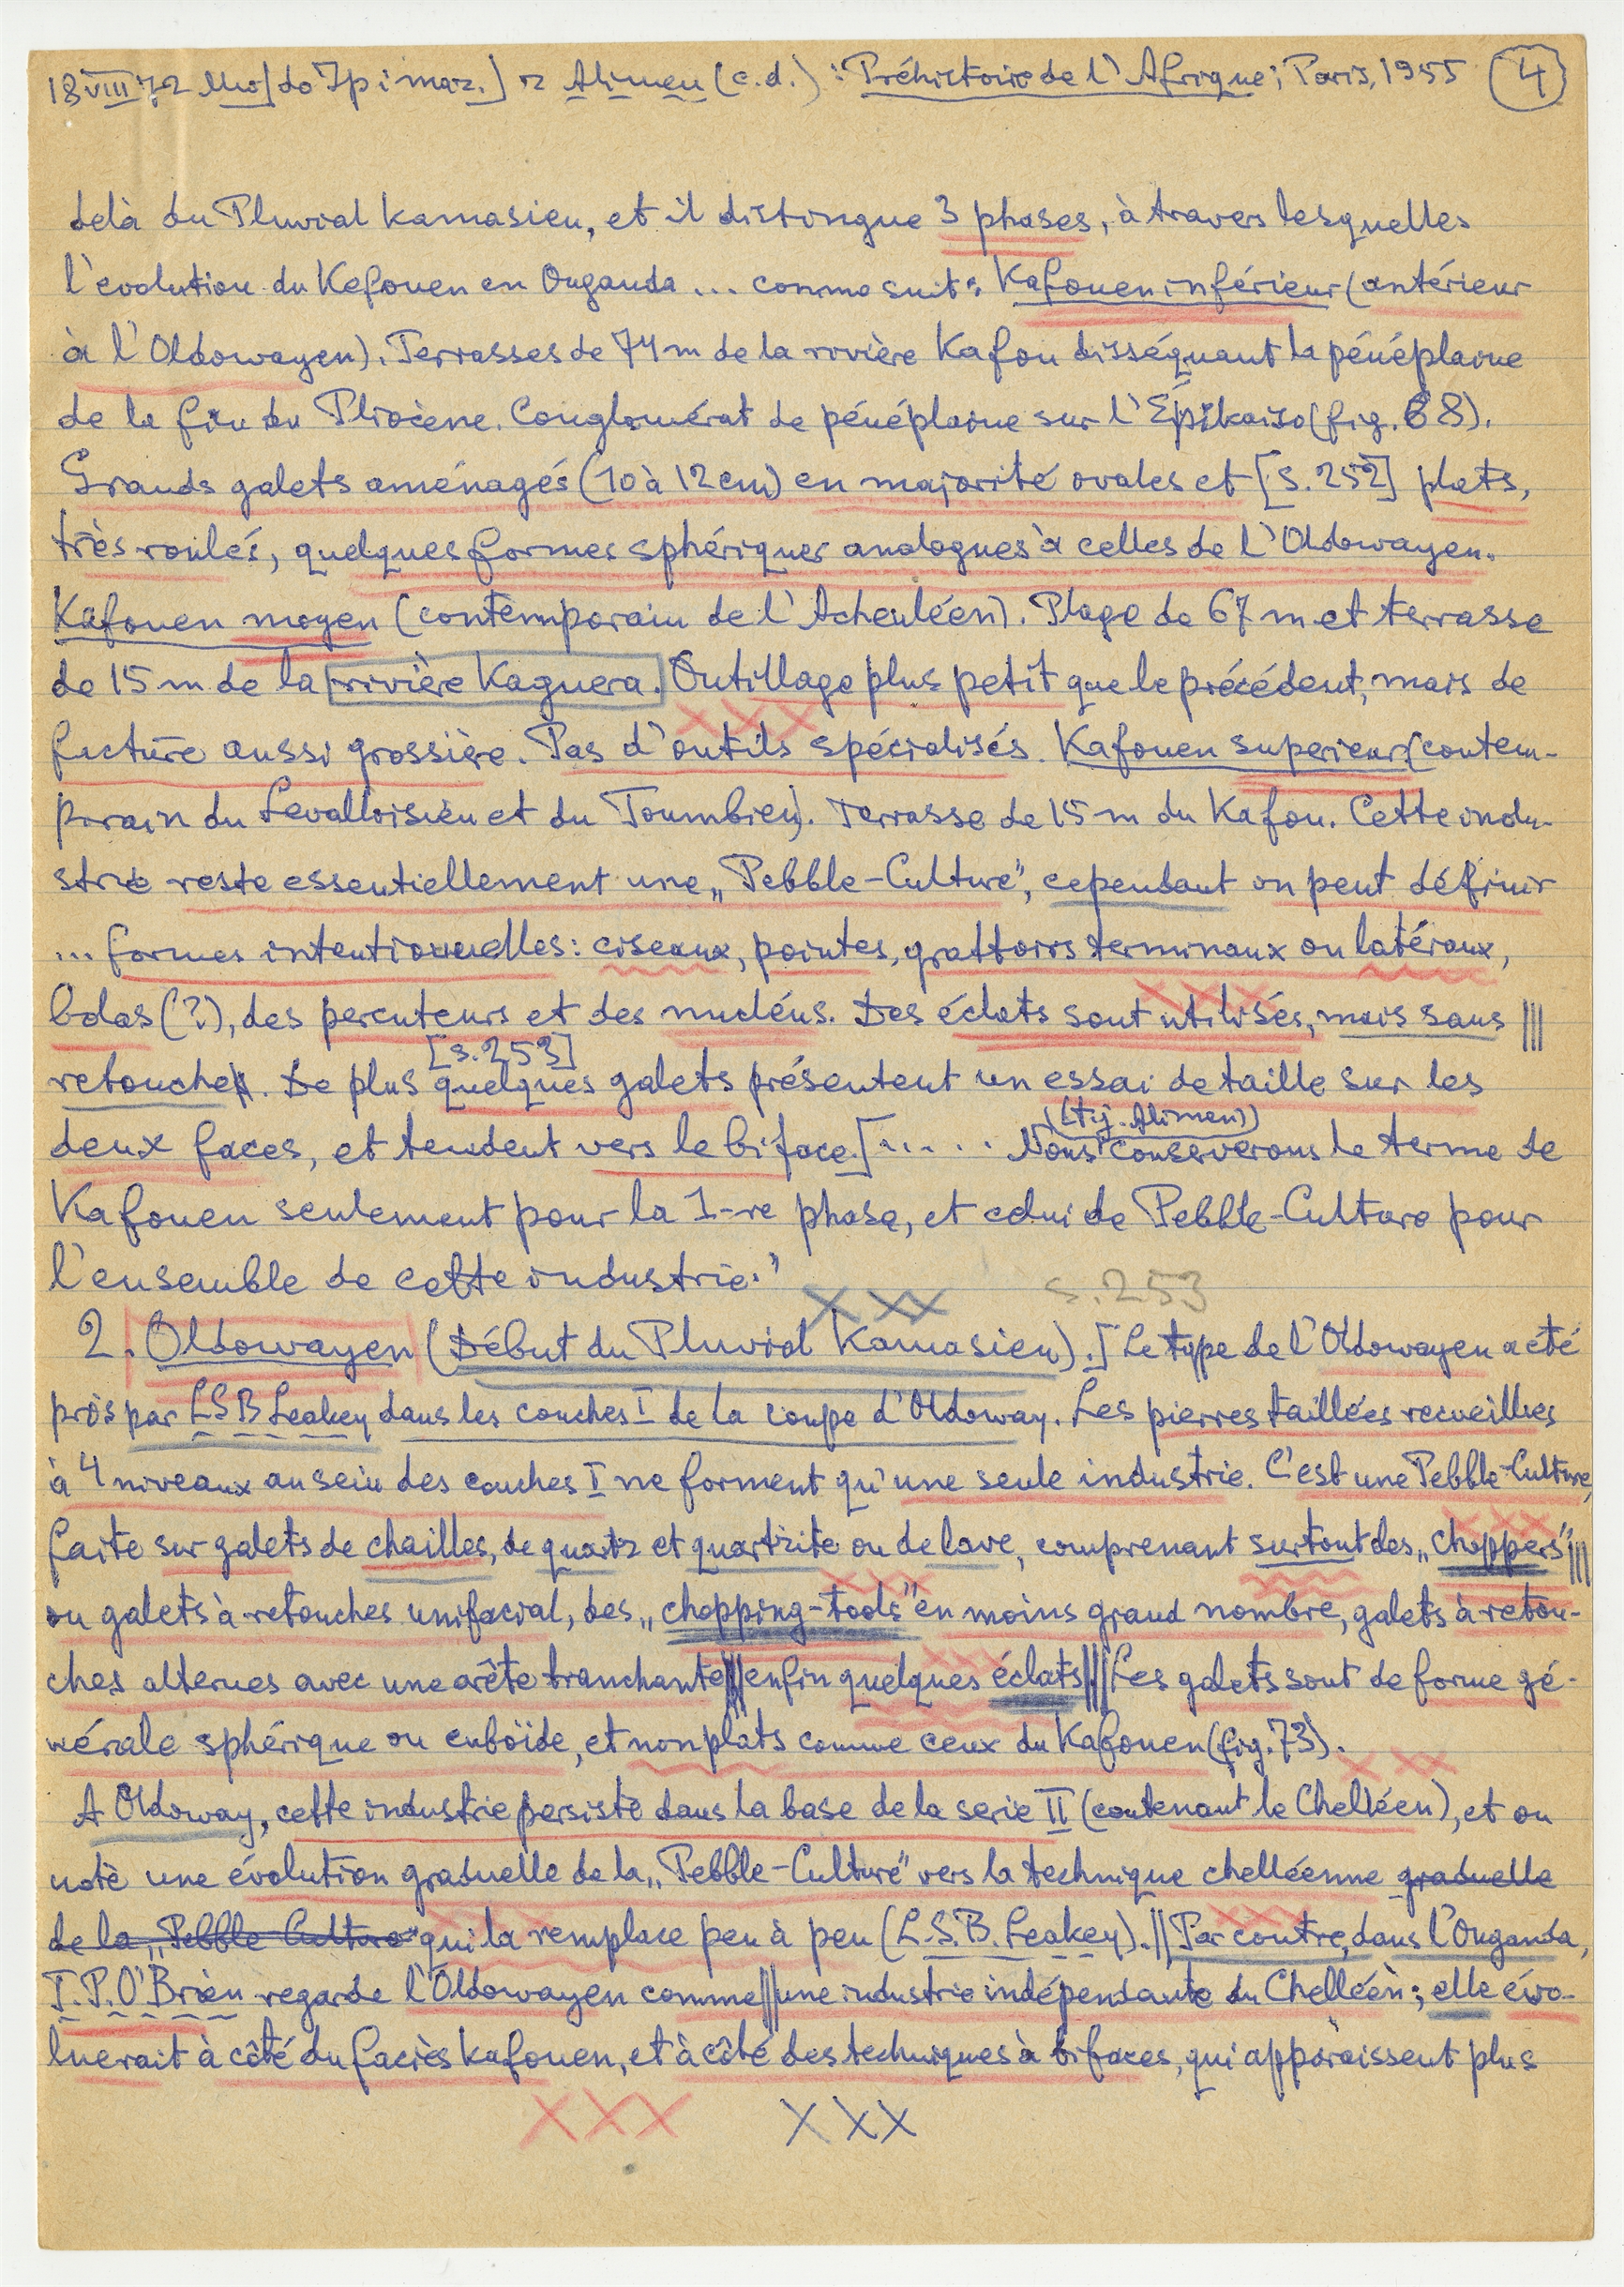 18 VIII 72 Alimen (c.d.): Préhistoire de l'Afrique; Paris, 1955 4
delà du Pluvial Kamasien, et il distingue 3 phases, à travers lesquelles
l'evolution du Kafouen en Ouganda ... comme suit: Kafouen inférieur (antérieur
à l'Oldowayen). Terrasses de 74 m de la rivière Kafou disséquant la pénéplaine
de la fin du Pliocène. Conglomérat de pénéplaine sur l' (fig. 68).
Grands galets aménagés (10 à 12 cm) en majorité ovales et [s. 252] plats,
très roulés, quelques formes sphériques analogues à celles de l'Oldowayen.
Kafouen moyen (contemporain de l'Acheuléen). Plage de 67 m et terrasse
de 15 m de la rivière Kaguera. Outillage plus petit que le précédent, mais de
facture aussi grossière. Pas d'outils spécialisés. Kafouen superieur (contem-
porain du Levalloisien et du Toumbien). Terrasse de 15 m du Kafou. Cette indu-
strie reste essentiellement une „Pebble-Culture”, cependant on peut définir
... formes intentionnelles: ciseaux, pointes, grattoirs terminaux ou latéraux,
bolas (?), des percuteurs et des nucléus. Des éclats sont utilisés, mais sans
[s. 253]
retouches. De plus quelques galets présentent un essai de taille sur les
(tj. Alimen)
deux faces, et tendent vers le biface.[..... Nous conserverons le terme de
Kafouen seulement pour la 1-re phase, et celui de Pebble-Culture pour
l'ensemble de cette industrie."
xxx s. 253
2. Oldowayen (Début du Pluvial Kamasien).] Le type de l'Oldowayen a été
pris par LSB Leakey dans les couches I de la coupe d'Oldoway. Les pierres taillées recueillies
à 4 niveaux au sein des couches I ne forment qu'une seule industrie. C'est une Pebble-Culture,
faite sur galets de chailles, de quartz et quartzite ou de lave, comprenant surtout des „choppers”
ou galets à retouches unifacial, des „chopping-tools” en moins grand nombre, galets à retou-
ches alternes avec une arête tranchante, enfin quelques éclats. Les galets sont de forme gé-
nérale sphérique ou cuboïde, et non plats comme ceux du Kafouen (fig. 73).
A Oldoway, cette industrie persiste dans la base de la serie II (contenant le Chelléen), et on
note une évolution graduelle de la „Pebble-Culture” vers la technique chelléenne graduelle
de la „Pebble Culture” qui la remplace peu à peu (L.S.B. Leakey). || Par contre, dans l'Ouganda,
T.P. O'Brien regarde l'Oldowayen comme || une industrie indépendante du Chelléen; elle évo-
luerait à côté du faciès kafouen, et à côté des techniques à bifaces, qui apparaissent plus
XXX XXX